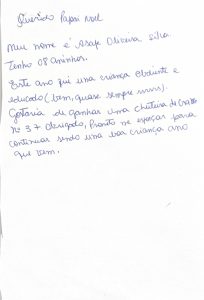 Querido Papai Noel
Meu nome é Asafe Oliveira Silva.
Tenho 08 aninhos.
Este ano fui uma criança obdiente e
educado (bem, quase sempre ).
Gostaria de ganhar uma chuteira de
nº 3 + obrigado, Prometo me esforçar para
continuar sendo uma boa criança ano
que vem.